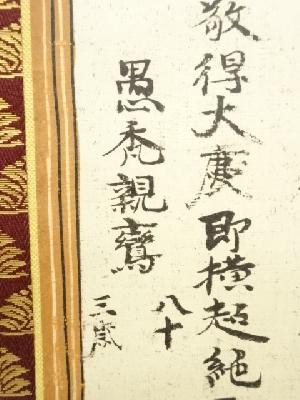 敬得大慶即横超絶
愚禿親鸞
八十
三歳